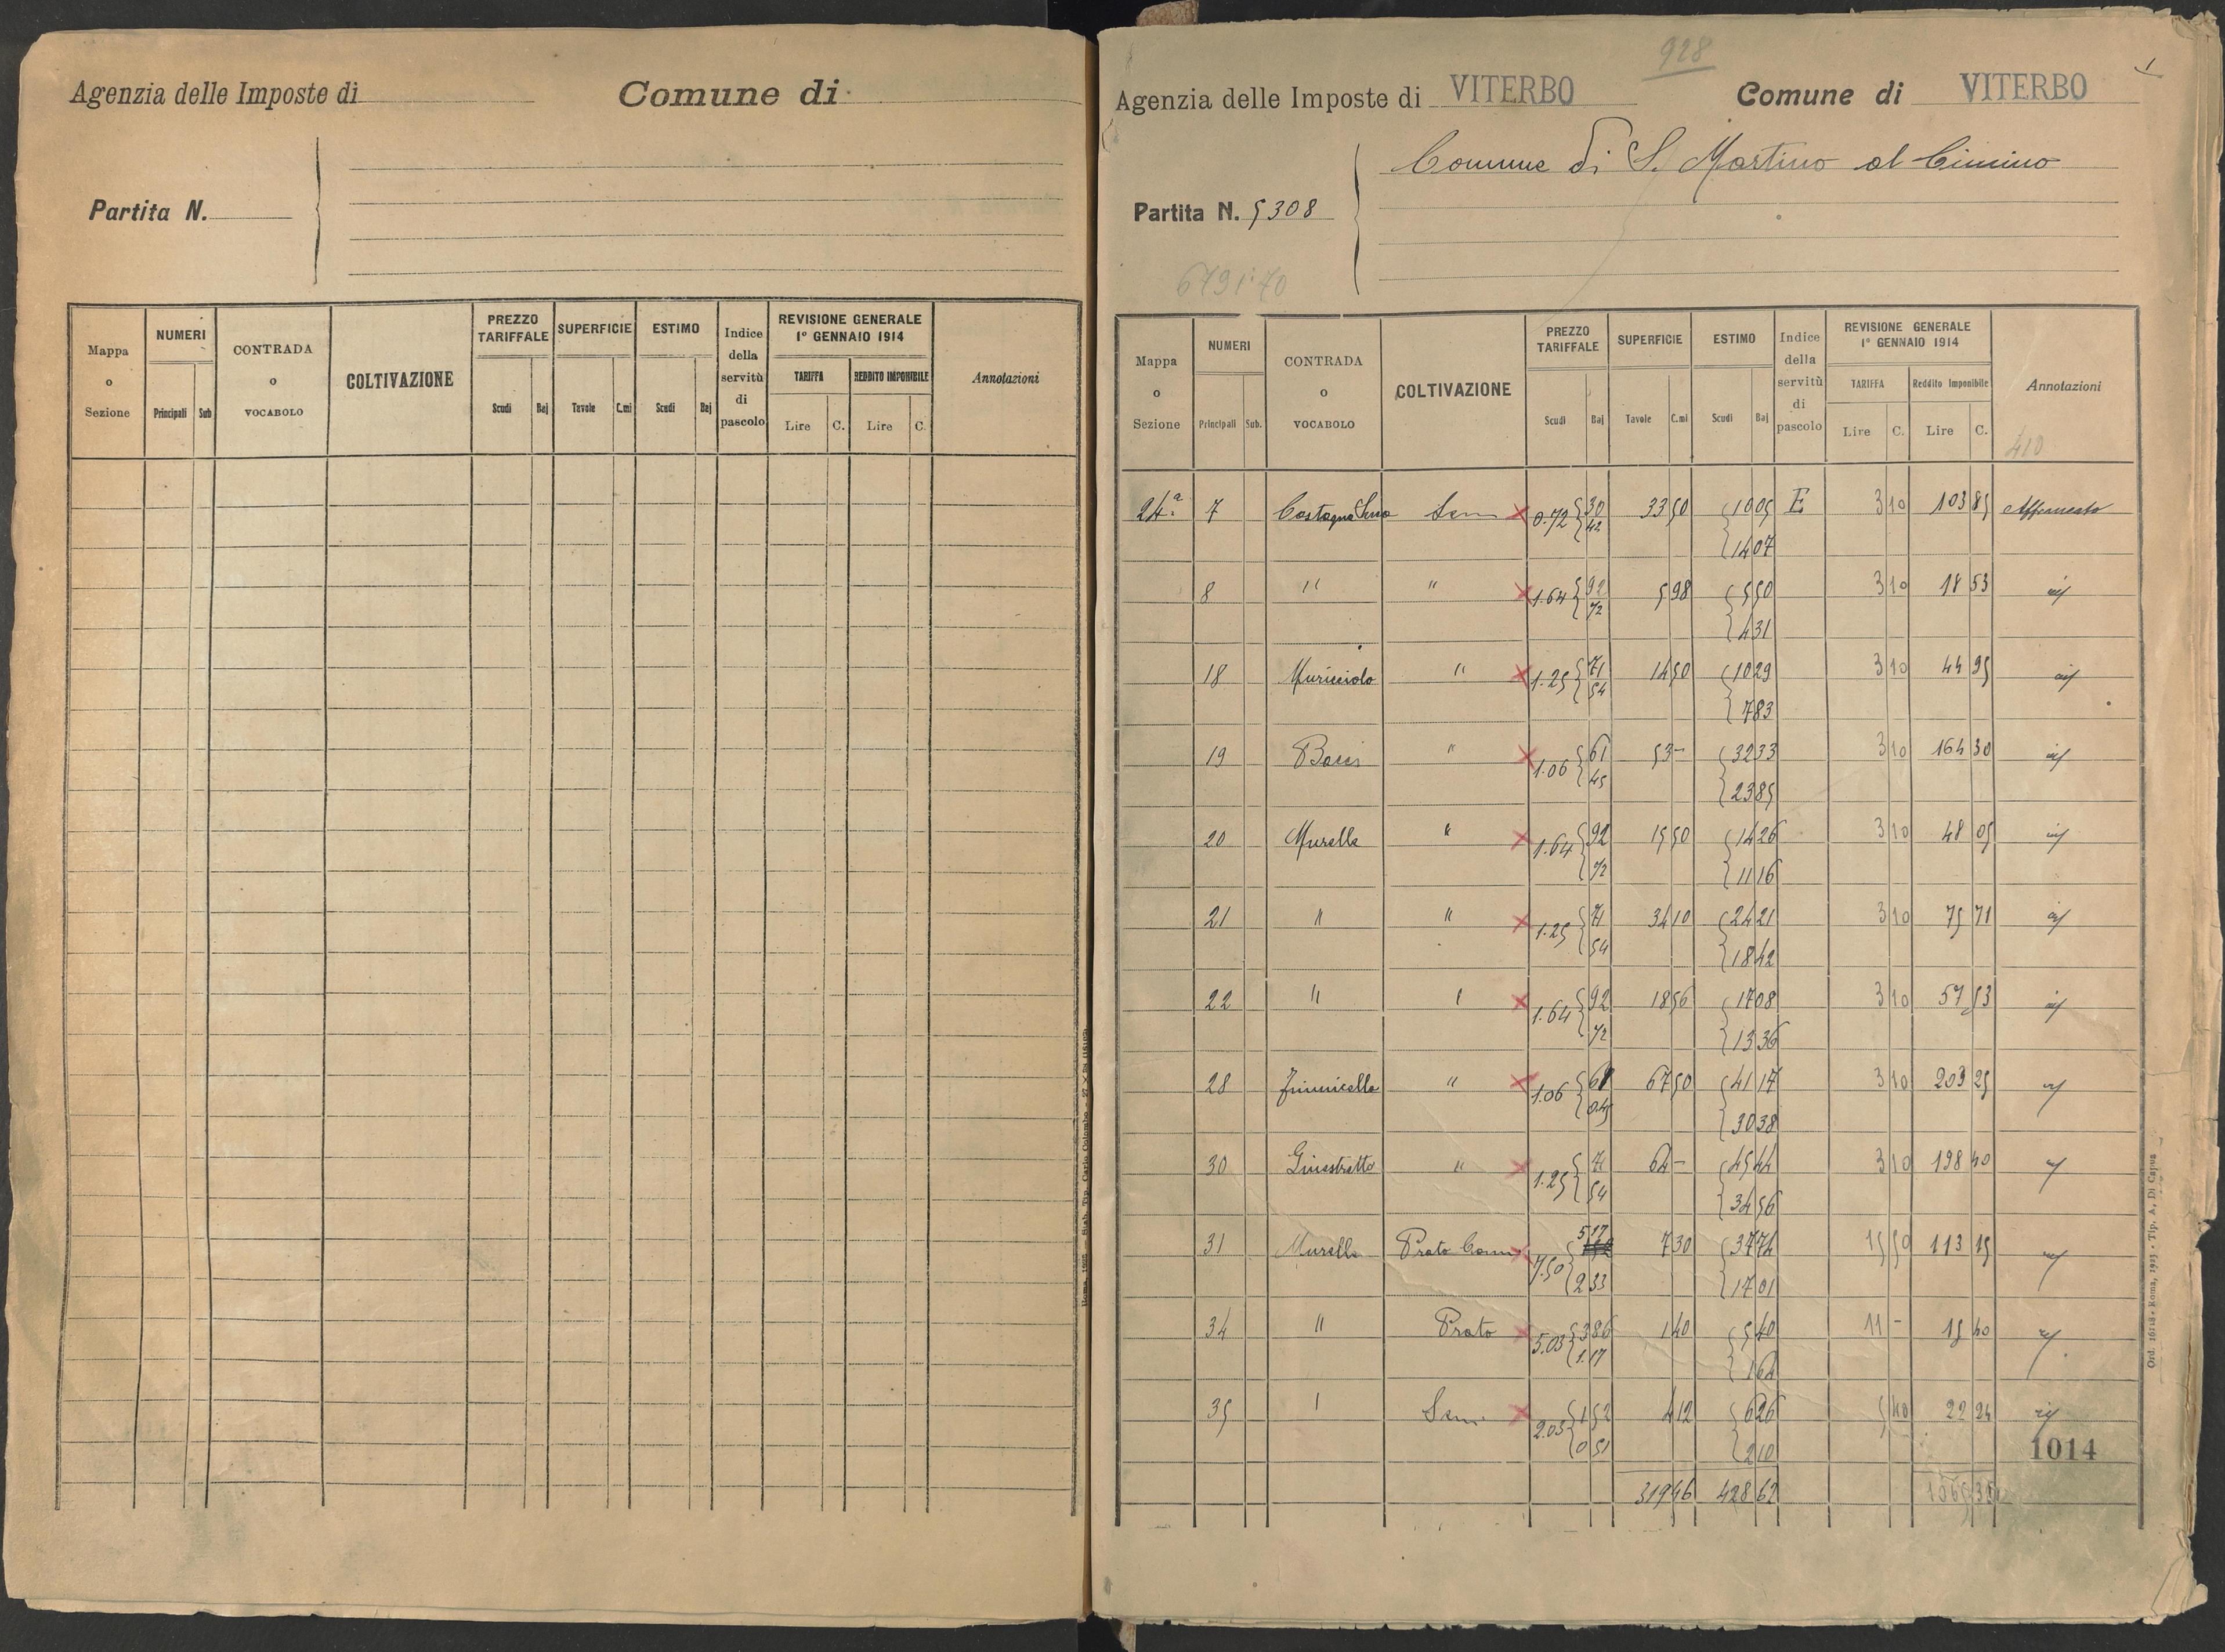 Agenzia delle Imposte di
Comune di
Partita N.
Mappa o Sezione
NUMERI
Principali Sub
CONTRADA o VOCABOLO
COLTIVAZIONE
PREZZO TARIFFALE
Scudi Baj
SUPERFICIE
Tavole C.mi
ESTIMO
Scudi Baj
Indice della servitù di pascolo
REVISIONE GENERALE
1° GENNAIO 1914
TARIFFA
Lire C.
REDDITO IMPONIBILE
Lire C.
Annotazioni
928
Agenzia delle Imposte di VITERBO
Comune di VITERBO
1
Comune di S. Martino al Cimino
Partita N. 5308
6791:70
Mappa o Sezione
NUMERI
Principali Sub.
CONTRADA o VOCABOLO
COLTIVAZIONE
PREZZO TARIFFALE
Scudi Baj
SUPERFICIE
Tavole C.mi
ESTIMO
Scudi Baj
Indice della servitù di pascolo
REVISIONE GENERALE
1° GENNAIO 1914
TARIFFA
Lire C.
Reddito Imponibile
Lire C.
Annotazioni
410
24.a 7 Sem 0.72 30 33 50 10 05 E 3 10 103 85
42 14 07
8 " " 1.64 92 5 98 5 50 3 10 18 53
72 4 31
18 Muricciolo " 1.25 71 14 50 10 29 3 10 44 95
54 7 83
19 " 1.06 61 53 - 32 33 3 10 164 30
45 23 85
20 Murelle " 1.64 92 15 50 14 26 3 10 48 05
72 11 16
21 " " 1.25 71 34 10 24 21 3 10 75 71
54 18 42
22 " " 1.64 92 18 56 17 08 3 10 57 53
72 13 36
28 " 1.06 61 67 50 41 17 3 10 203 25
0.45 30 38
30 Ginestretto " 1.25 71 64 - 45 44 3 10 198 40
54 34 56
31 Murelle Prato 7.50 5 17 7 30 37 74 15 50 113 15
2 33 17 01
34 " Prato 5.03 3 86 1 40 5 40 11 - 15 40
1.17 1 64
35 " Sem. 2.03 1 52 4 12 6 26 5 40 22 24
0 51 2 10
1014
319 46 428 62
Ord. 16118 - Roma, 1923 - Tip. A. Di Capua